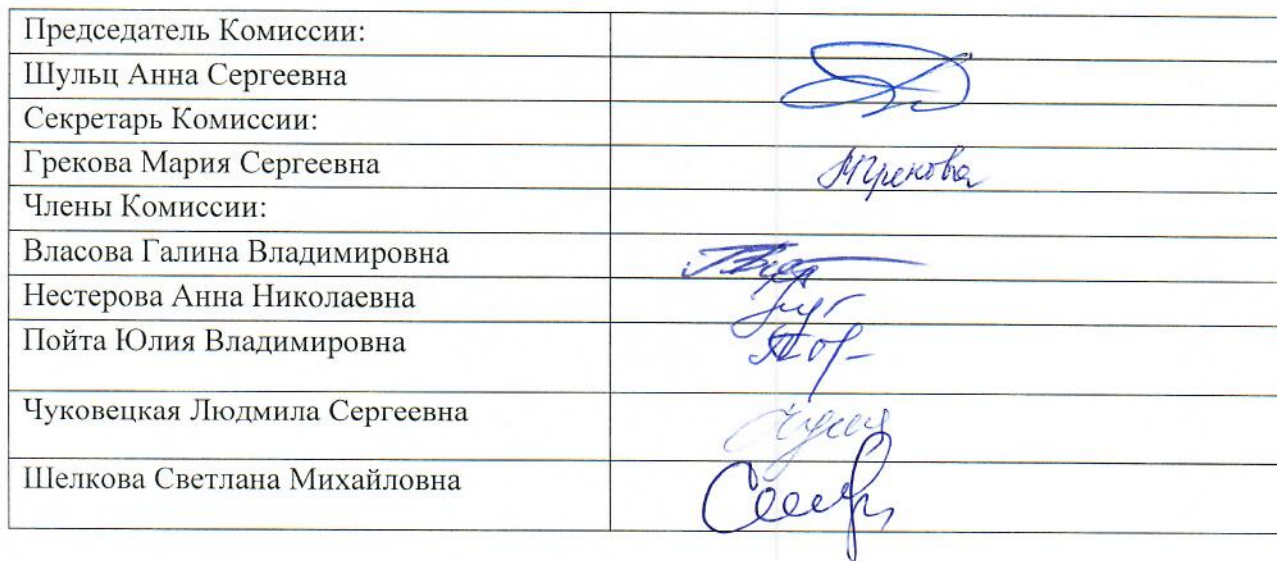 Председатель Комиссии:
Шульц Анна Сергеевна
Секретарь Комиссии:
Грекова Мария Сергеевна МГрекова
Члены Комиссии:
Власова Галина Владимировна
Нестерова Анна Николаевна
Пойта Юлия Владимировна
Чуковецкая Людмила Сергеевна
Шелкова Светлана Михайловна